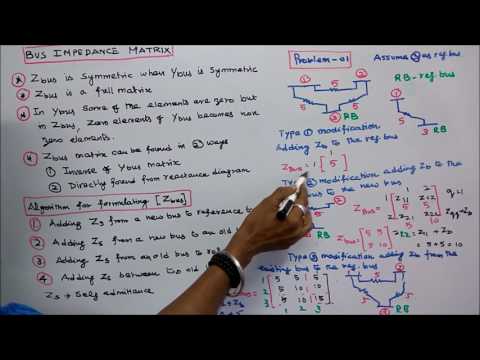 BUS IMPEDANCE MATRIX
* Zbus is symmetric when Ybus is symmetric
* Zbus is a full matrix
* In Ybus some of the elements are zero but
in Zbus, zero elements of Ybus becomes non
zero elements.
* Zbus matrix can be found in 2 ways
1 Inverse of Ybus matrix
2 Directly found from reactance diagram
Algorithm for formulating [Zbus]
1 Adding Zs from a new bus to reference
2 Adding Zs from a new bus to an old
3 Adding Zs from an old bus to
4 Adding Zs between two old
Zs → Self admittance
Problem-01
Assume 3 as ref.bus
RB - ref.bus
1 5 2
5 5
3 RB
1
5
3 RB
Type 1 modification
Adding Zb to the ref.bus
1
Zbus = 1 [5]
Type 2 modification adding Zb to the
bus to the new bus
1 2
Zbus = 5 5
5 10
= 5+5=10
Type 3 modification adding Zb from the
existing bus to the ref.bus
1 5 5 5
2 5 10 10
3 5 10 15
3 RB